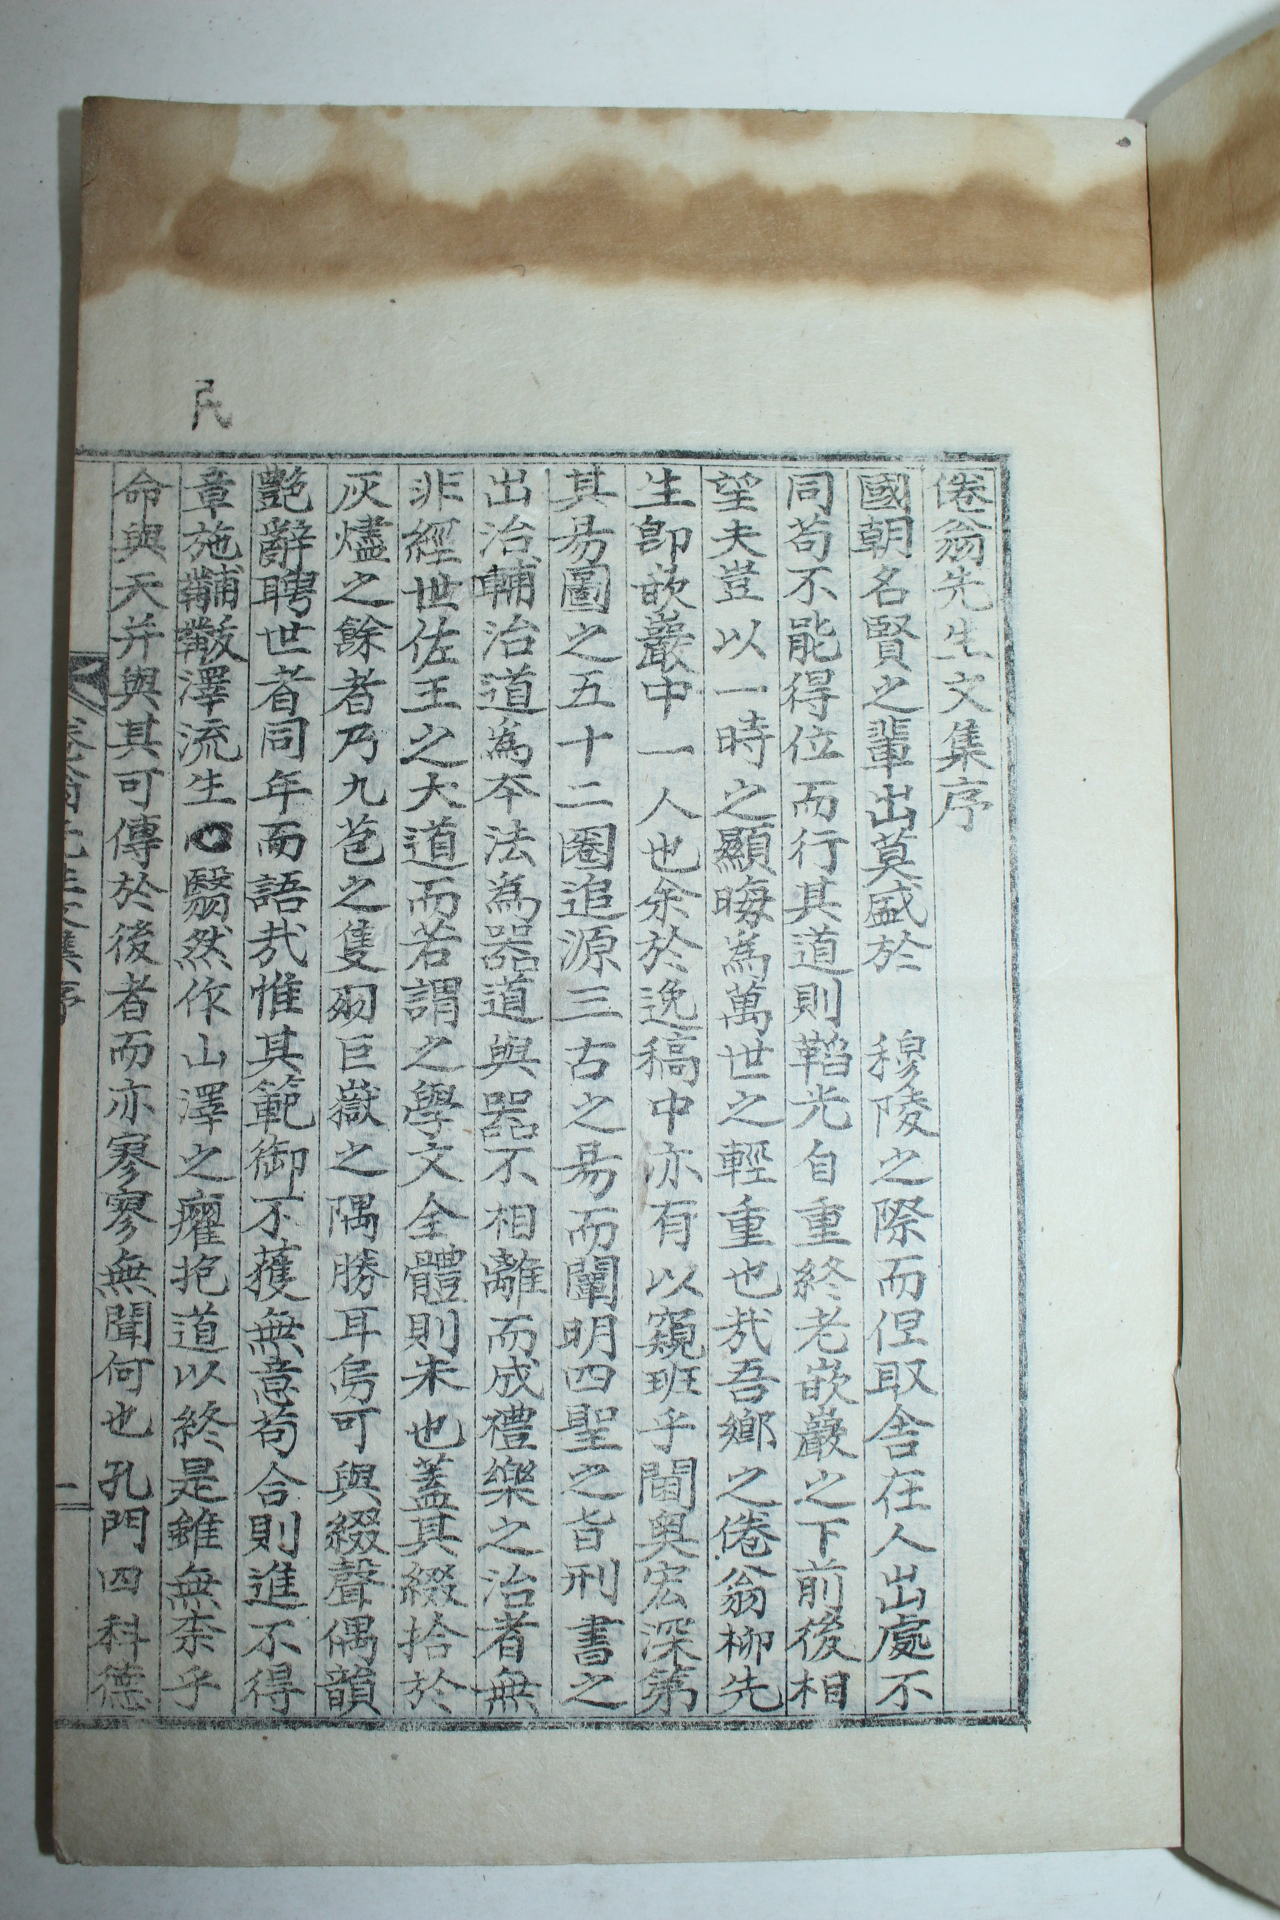 倦翁先生文集序
國朝名賢之輩出莫盛於 穆陵之際而但取舍在人出處不
同苟不能得位而行其道則韜光自重終老嵌巖之下前後相
望夫豈以一時之顯晦為萬世之輕重也哉吾鄉之倦翁柳先
生卽嵌巖中一人也余於逸稿中亦有以窺班乎閫奧宏深第
其易圖之五十二圈追源三古之易而闡明四聖之旨刑書之
出治輔治道為本法為器道與器不相離而成禮樂之治者無
非經世佐王之大道而若謂之學文全體則未也蓋其綴拾於
灰燼之餘者乃九苞之隻羽巨嶽之隅勝耳烏可與綴聲偶韻
艶辭聘世者同年而語哉惟其範御不獲無意苟合則進不得
章施黼黻澤流生 翳然作山澤之癯抱道以終是雖無柰乎
命與天幷與其可傳於後者而亦寥寥無聞何也孔門四科德
民
倦翁先生文集序
二